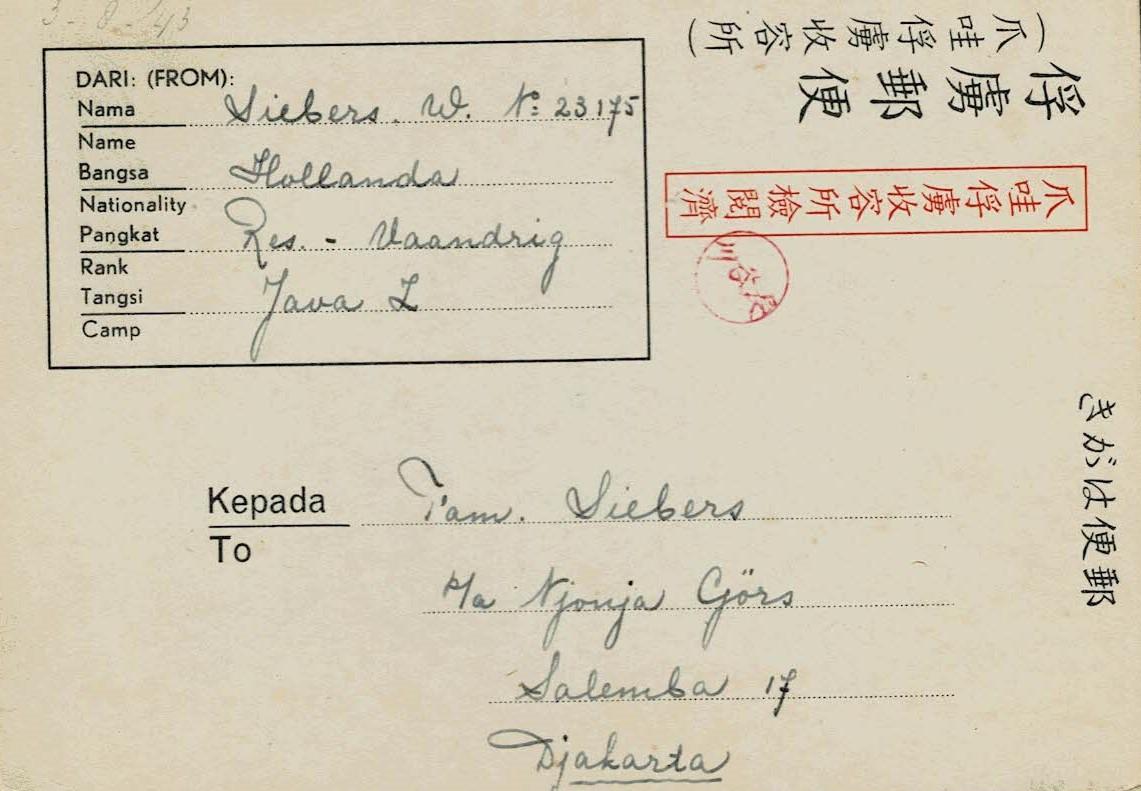 3-8-43
DARI: (FROM):
Nama Siebers. W. No: 23175
Name
Bangsa Hollanda
Nationality
Pangkat Res. - Vaandrig
Rank
Tangsi Java I
Camp
(爪哇俘虜收容所)
俘虜郵便
爪哇俘虜收容所檢閱濟
郵便はがき
Kepada Fam. Siebers
To
p/a Njonja Görs
Salemba 17
Djakarta